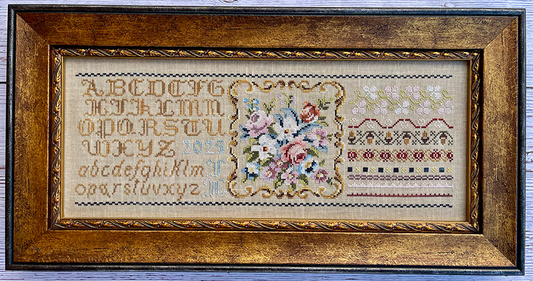 ABCDEFG
HIJKLMN
OPQRSTU
VWXYZ
abcdefghijklm
opqrstuvwxyz